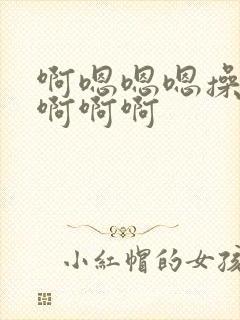 啊嗯嗯嗯操
啊啊啊
小红帽的女孩